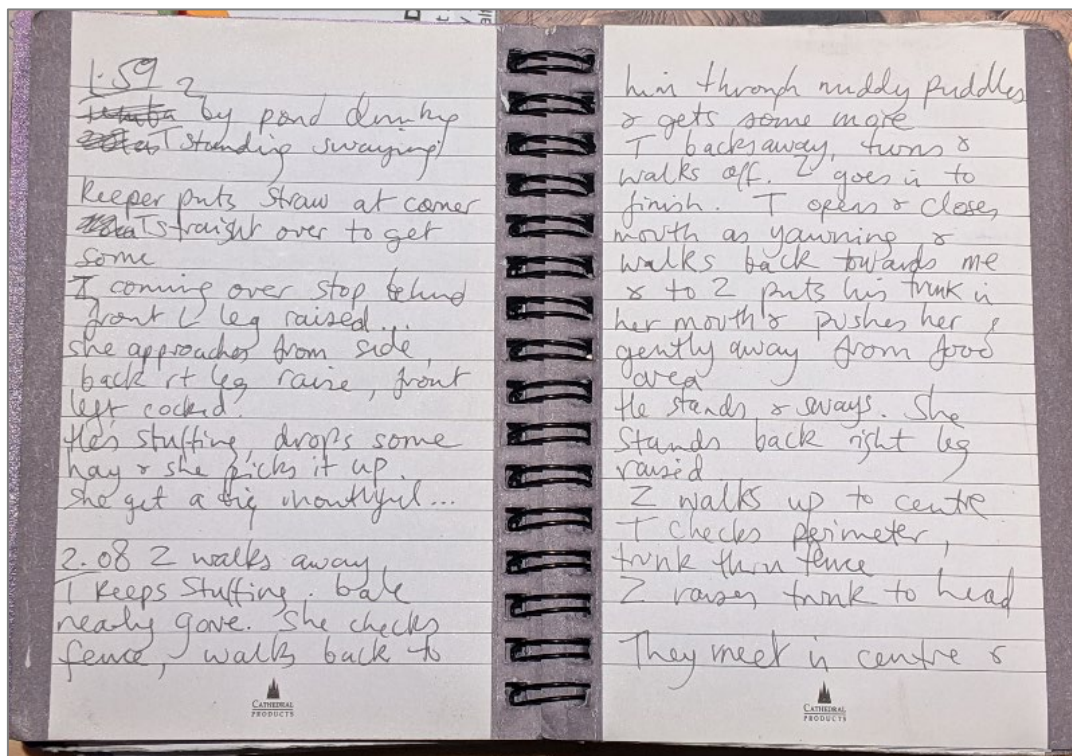 1.59
Z by pond drinking
T standing swaying
Keeper puts straw at corner
T straight over to get
some
Z coming over stop behind
front L leg raised...
she approaches from side,
back rt leg raise, front
left cocked.
He's stuffing, drops some
hay & she picks it up.
She get a big mouthful...
2.08 Z walks away
T keeps stuffing. bale
nearly gone. She checks
fence, walks back to
CATHEDRAL
PRODUCTS
him through muddy puddles
& gets some more
T backs away, turns &
walks off. Z goes in to
finish. T opens & closes
mouth as yawning &
walks back towards me
& to Z puts his trunk in
her mouth & pushes her
gently away from food
area
He stands & sways. She
stands back right leg
raised
Z walks up to centre
T checks perimeter,
trunk thru fence
Z raises trunk to head
They meet in centre &
CATHEDRAL
PRODUCTS